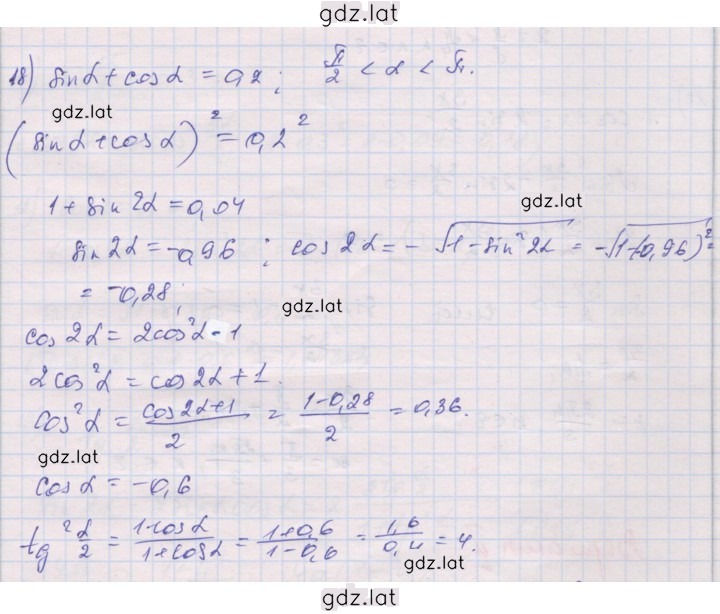 gdz.lat
18) sinα + cosα = 0,2 ; π/2 < α < π.
gdz.lat
(sinα + cosα)² = 0,2²
1 + sin 2α = 0,04
gdz.lat
sin 2α = -0,96 ; cos 2α = -√(1 - sin²2α) = -√(1-(0,96)²) =
= -0,28;
gdz.lat
cos 2α = 2cos²α - 1
2cos²α = cos 2α + 1.
cos²α = (cos 2α + 1)/2 = (1-0,28)/2 = 0,36.
gdz.lat
cos α = -0,6
tg² α/2 = (1-cosα)/(1+cosα) = (1+0,6)/(1-0,6) = 1,6/0,4 = 4.
gdz.lat
gdz.lat